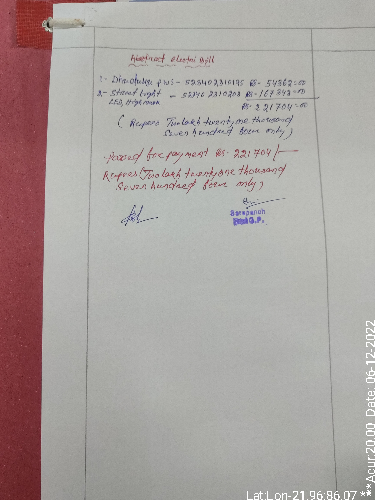 Abstract electri Bill
1- Dinotubu P/W:- 523402210195 RS- 54862=00
2- Street Light - 52340 2210208 RS-167842=00
LED, Highmax
RS= 221704=00
( Rupees Two lakh twenty one thousand
Seven hundred four only )
Passed for payment RS- 221704/-
Rupees (Two lakh twenty one thousand
Seven hundred four only )
Sarapanch
G.P.
Lat:Lon-21.96:86.07 ***Acur:20.00 Date: 06-12-2022